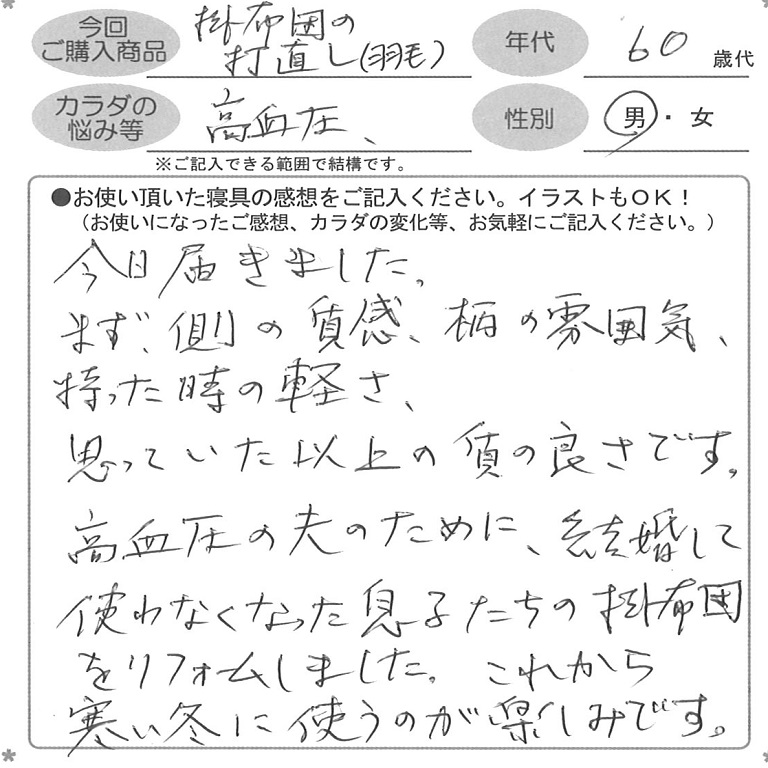 今回
ご購入商品
掛布団の
打直し(羽毛)
年代
60
歳代
カラダの
悩み等
高血圧、
性別
男・女
※ご記入できる範囲で結構です。
●お使い頂いた寝具の感想をご記入ください。イラストもOK!
(お使いになったご感想、カラダの変化等、お気軽にご記入ください。)
今日届きました。
まず、側の質感、柄の雰囲気、
持った時の軽さ、
思っていた以上の質の良さです。
高血圧の夫のために、結婚して
使わなくなった息子たちの掛布団
をリフォームしました。これから
寒い冬に使うのが楽しみです。